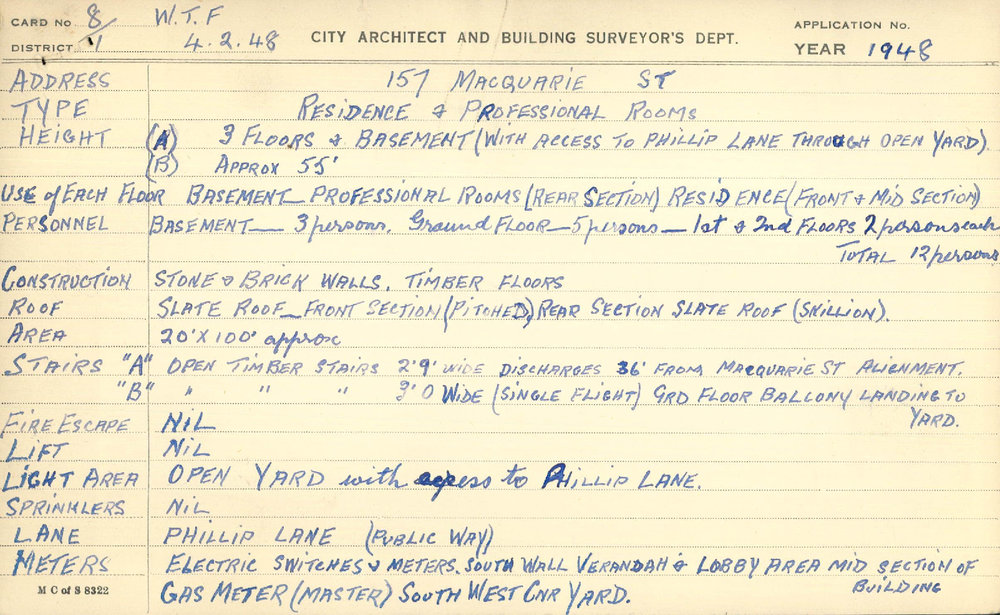 CARD No 8/1 W.T.F
DISTRICT 4.2.48
CITY ARCHITECT AND BUILDING SURVEYOR'S DEPT.
APPLICATION No.
YEAR 1948
ADDRESS 157 MACQUARIE ST
TYPE RESIDENCE & PROFESSIONAL ROOMS
HEIGHT (A) 3 FLOORS & BASEMENT (WITH ACCESS TO PHILLIP LANE THROUGH OPEN YARD)
(B) APPROX 55'
USE of EACH FLOOR BASEMENT - PROFESSIONAL ROOMS (REAR SECTION) RESIDENCE (FRONT & MID SECTION)
PERSONNEL BASEMENT - 3 persons, Ground FLOOR - 5 persons - 1st & 2nd FLOORS 2 persons each
TOTAL 12 persons
CONSTRUCTION STONE & BRICK WALLS, TIMBER FLOORS
ROOF SLATE ROOF - FRONT SECTION (PITCHED), REAR SECTION SLATE ROOF (SKILLION).
AREA 20' X 100' approx
STAIRS "A" OPEN TIMBER STAIRS 2'9" WIDE DISCHARGES 36' FROM MACQUARIE ST ALIGNMENT.
"B" " " " 3'0 WIDE (SINGLE FLIGHT) GRD FLOOR BALCONY LANDING TO
YARD.
FIRE ESCAPE NIL
LIFT NIL
LIGHT AREA OPEN YARD with access to PHILLIP LANE.
SPRINKLERS NIL
LANE PHILLIP LANE (PUBLIC WAY)
METERS ELECTRIC SWITCHES & METERS. SOUTH WALL VERANDAH & LOBBY AREA MID SECTION OF
BUILDING
M C of S 8322 GAS METER (MASTER) SOUTH WEST CNR YARD.